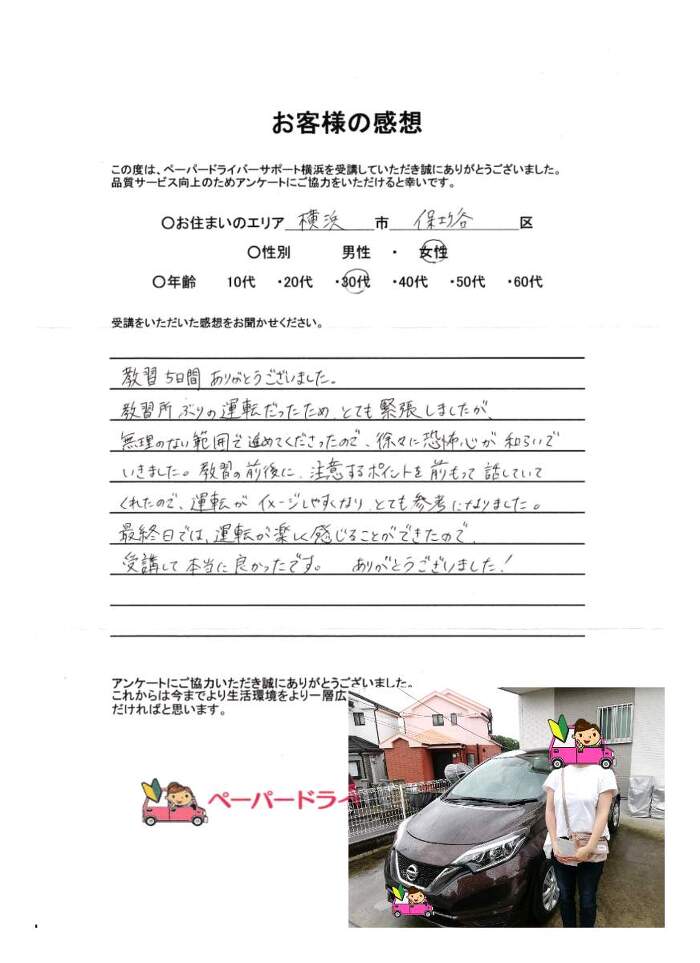 お客様の感想
この度は、ペーパードライバーサポート横浜を受講していただき誠にありがとうございました。
品質サービス向上のためアンケートにご協力をいただけると幸いです。
〇お住まいのエリア 横浜 市 保土ケ谷 区
〇性別 男性 ・ 女性
〇年齢 10代 ・20代 ・30代 ・40代 ・50代 ・60代
受講をいただいた感想をお聞かせください。
教習5日間ありがとうございました。
教習所ぶりの運転だったため、とても緊張しましたが、
無理のない範囲で進めてくださったので、徐々に恐怖心が和らいで
いきました。教習の前後に、注意するポイントを前もって話していて
くれたので、運転がイメージしやすくなり、とても参考になりました。
最終日では、運転が楽しく感じることができたので、
受講して本当に良かったです。 ありがとうございました!
アンケートにご協力いただき誠にありがとうございました。
これからは今までより生活環境をより一層広
だければと思います。
ペーパードライ